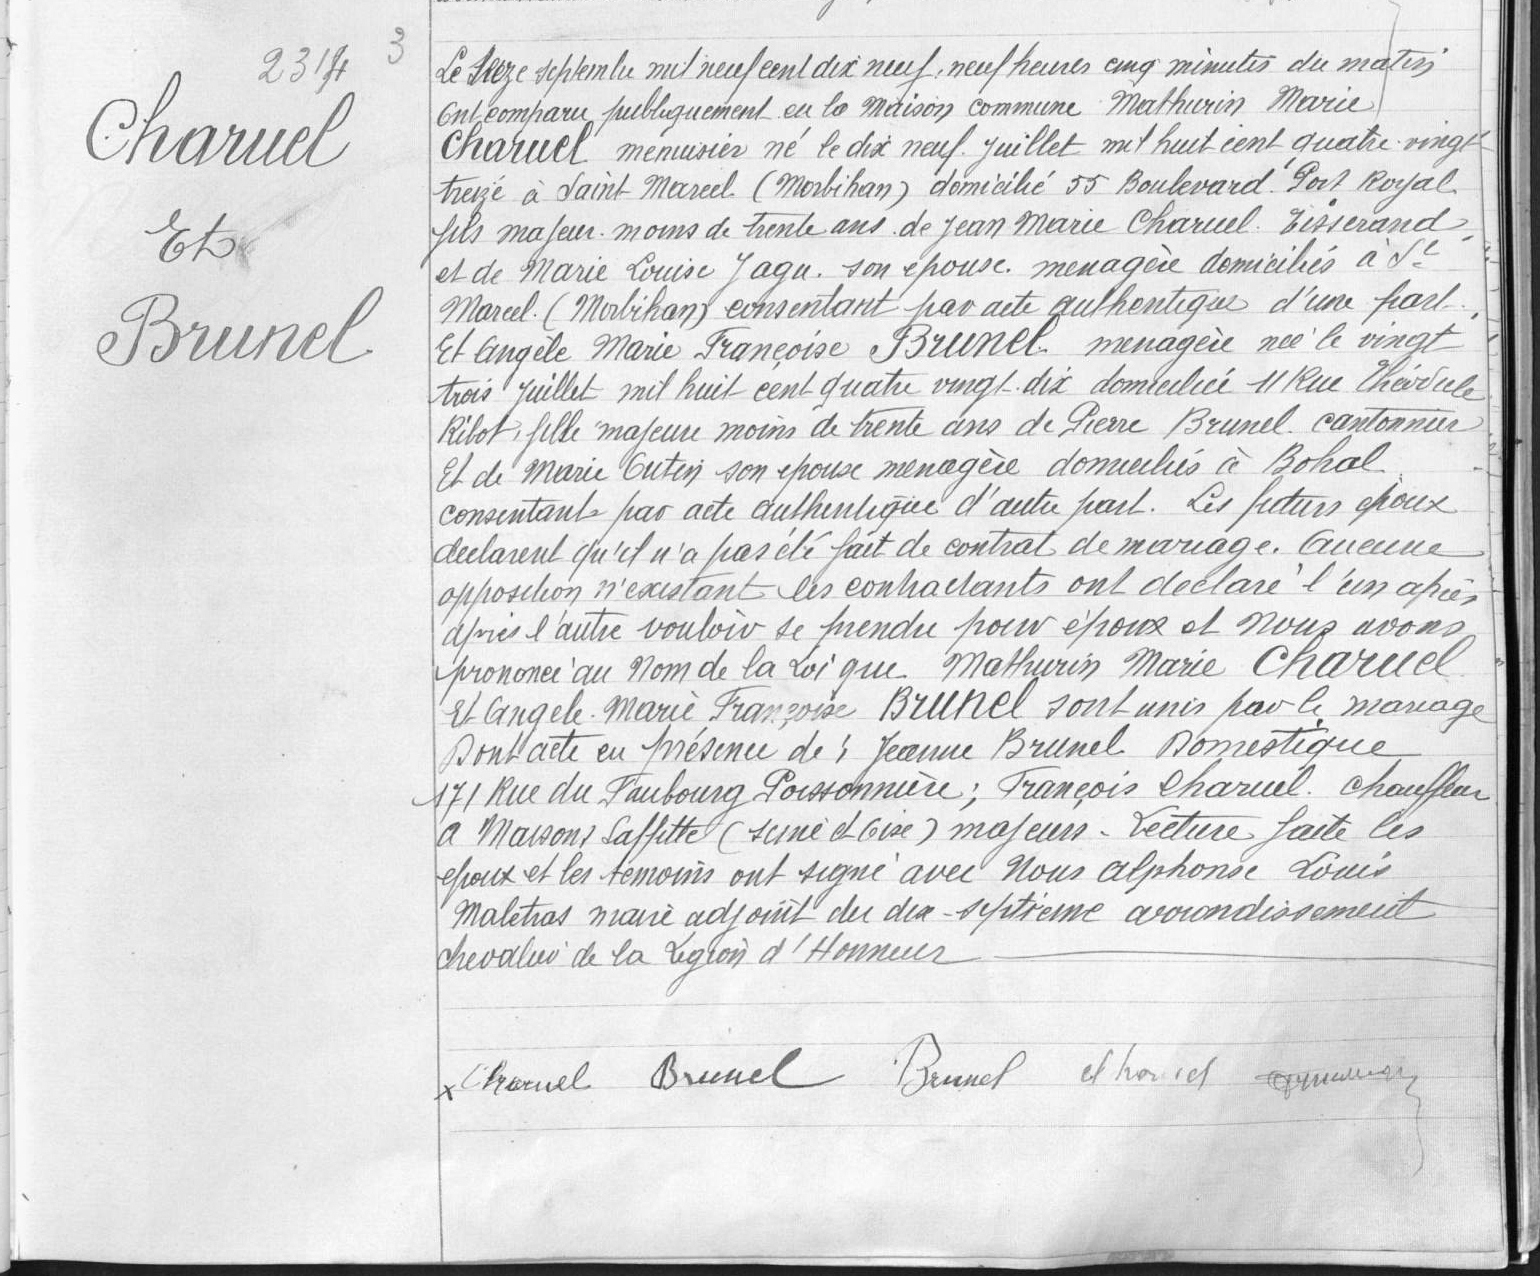 3
Charuel
Et
Brunel
Le Seize septembre mil neuf cent dix neuf, neuf heures cinq minutes du matin
Ont comparu publiquement en la Maison commune Mathurin Marie
Charuel menuisier né le dix neuf Juillet mil huit cent quatre vingt
treize à Saint Marcel (Morbihan) domicilié 55 Boulevard Port Royal
fils majeur moins de trente ans de Jean Marie Charuel Tisserand
et de Marie Louise Jagu son epouse menagère domiciliés à St
Marcel (Morbihan) consentant par acte authentique d'une part.
Et Angèle Marie Françoise Brunel menagère née le vingt
trois Juillet mil huit cent quatre vingt dix domiciliée 11 Rue Théodule
Ribot, fille majeure moins de trente ans de Pierre Brunel cantonnier
Et de Marie son epouse menagère domiciliés à Bohal
consentant par acte authentique d'autre part. Les futurs époux
declarent qu'il n'a pas été fait de contrat de mariage. Aucune
opposition n'existant les contractants ont declaré l'un après
après l'autre vouloir se prendre pour époux et Nous avons
prononcé au Nom de la Loi que Mathurin Marie Charuel
Et Angele Marie Françoise Brunel sont unis par le mariage
Dont acte en présence de : Jeanne Brunel Domestique
171 Rue du Faubourg Poissonnière ; François Charuel chauffeur
a Maisons Laffitte (seine et Oise) majeurs - Lecture faite les
epoux et les temoins ont signé avec Nous Alphonse Louis
Maletras maire adjoint du dix-septième arrondissement
chevalier de la Légion d'Honneur
x Charuel Brunel Brunel Charuel